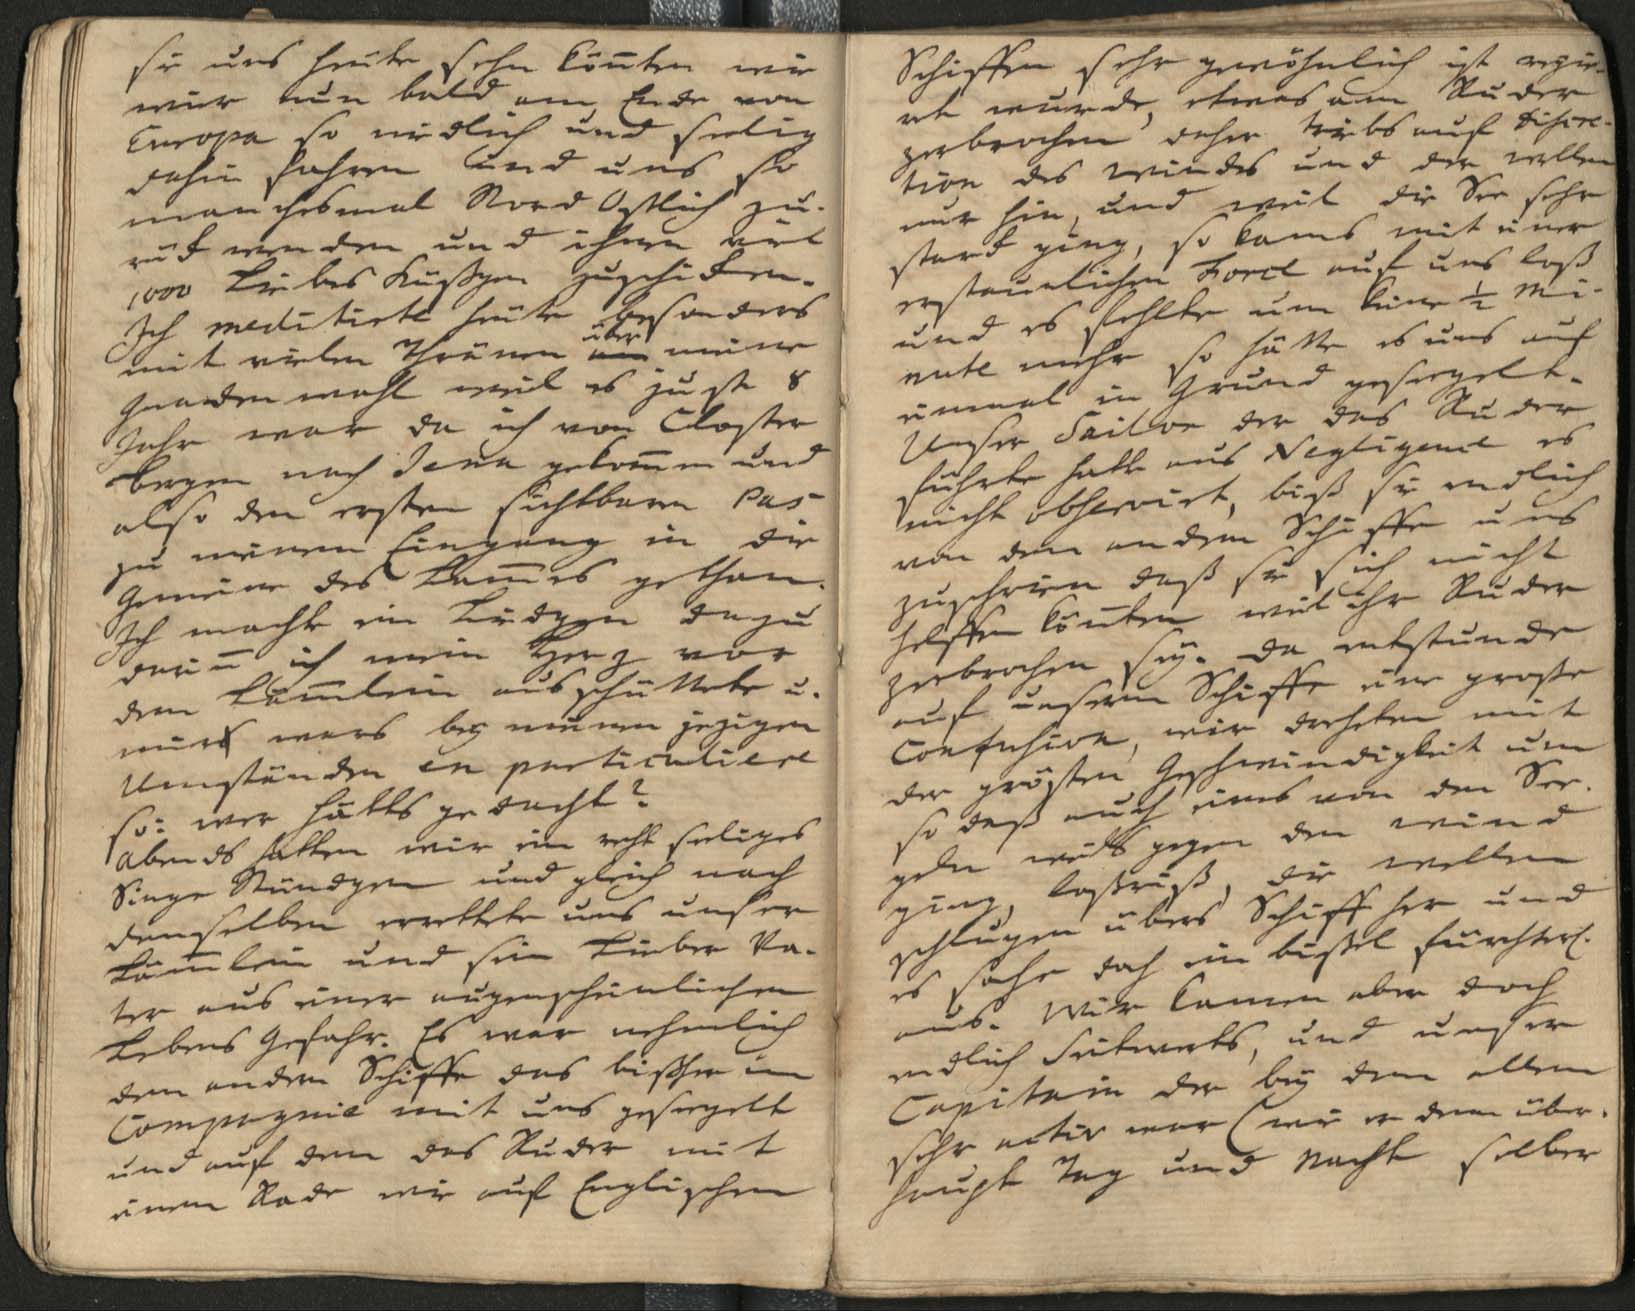 sie uns heute sehn könten wie
wir nun bald am Ende von
Europa so niedlich und seelig
dahin fahren und uns so
manchesmal Nord Ostlich zu-
rük wenden und ihnen viel
1000 Liebes Küßgen zuschiken.
Ich meditirte heute besonders
mit vielen Thränen über meine
Gnadenwahl weil es just 8
Jahr war da ich von Closter
Bergen nach Jena gekommen und
also den ersten sichtbaren Pas
zu meinem Eingang in die
Gemeine des Lammes gethan.
Ich machte ein Liedgen dazu
darinn ich mein Herz vor
dem Lämmlein ausschüttete u.
mirs wars bey meinen jezigen
Umständen en particuliere
so: wer hätts gedacht?
Abends hatten wir ein recht seliges
Singe Stündgen und gleich nach
demselben errettete uns unser
Lämmlein und sein Lieber Va-
ter aus einer augenscheinlichen
Lebens Gefahr. Es war nehmlich
dem andern Schiffe das bißher in
Compagnie mit uns gesegelt
und auf dem das Ruder mit
einem Rade wie auf Englischen
Schiffen sehr gewöhnlich ist regie-
ret wurde, etwas am Ruder
zerbrochen daher triebs auf discre-
tion des windes und der wellen
nur hin, und weil die See sehr
starck ging, so kams mit einer
erstaunlichen Force auf uns loß
und es fehlte um keine ½ Mi-
nute mehr so hätte es uns auf
einmal in Grund gesegelt.
Unser Sailor der das Ruder
führte hatte aus Negligence es
nicht observirt, biß sie endlich
von dem andern Schiffe uns
zuschrien daß sie sich nicht
helffen könten weil ihr Ruder
zerbrochen sey. Da entstunde
auf unserm Schiffe eine große
Confusion, wir drehten mit
der grösten Geschwindigkeit um
so daß auch eins von den See-
geln weils gegen den wind
ging, loßriß, die wellen
schlugen übers Schiff her und
es sahe doch ein bissel fürchterl.
aus. Wir kamen aber doch
endlich Seitwerts, und unser
Capitain der bey dem allem
sehr activ war (wie er denn über-
haupt Tag und Nacht selber